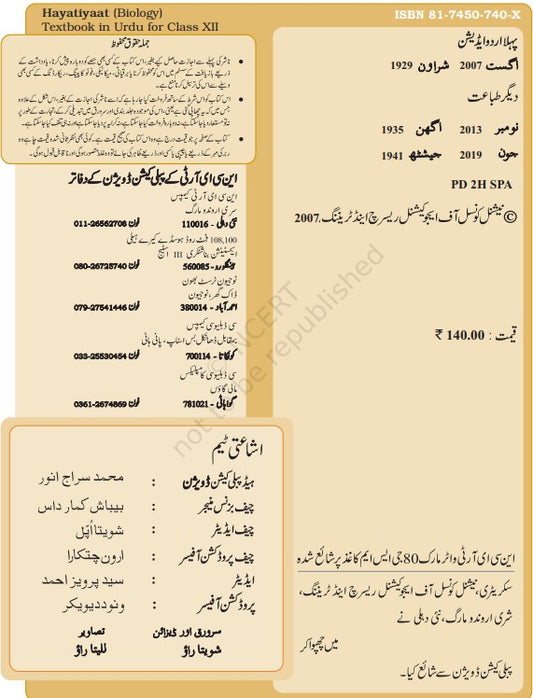 Hayatiyaat (Biology)
Textbook in Urdu for Class XII
ISBN 81-7450-740-X
پہلا اردو ایڈیشن
اگست 2007 شراون 1929
دیگر طباعت
نومبر 2013 اگھن 1935
جون 2019 جیشٹھ 1941
PD 2H SPA
© نیشنل کونسل آف ایجوکیشنل ریسرچ اینڈ ٹریننگ، 2007
قیمت : 140.00 ₹
این سی ای آر ٹی واٹر مارک 80 جی ایس ایم کاغذ پر شائع شدہ
سکریٹری، نیشنل کونسل آف ایجوکیشنل ریسرچ اینڈ ٹریننگ،
شری اروندو مارگ، نئی دہلی نے
میں چھپوا کر
پبلی کیشن ڈویژن سے شائع کیا۔
جملہ حقوق محفوظ
• ناشر کی پہلے سے اجازت حاصل کیے بغیر، اس کتاب کے کسی بھی حصے کو دوبارہ پیش کرنا، یادداشت کے
ذریعے بازیافت کے سسٹم میں اس کو محفوظ کرنا یا برقیاتی، میکانیکی، فوٹو کاپینگ، ریکارڈنگ کے کسی بھی
وسیلے سے اس کی ترسیل کرنا منع ہے۔
• اس کتاب کو اس شرط کے ساتھ فروخت کیا جا رہا ہے کہ اسے ناشر کی اجازت کے بغیر، اس شکل کے علاوہ
جس میں کہ یہ چھاپی گئی ہے یعنی، اس کی موجودہ جلد بندی اور سرورق میں تبدیلی کر کے، تجارت کے طور پر
نہ تو مستعار دیا جا سکتا ہے، نہ دوبارہ فروخت کیا جا سکتا ہے، نہ کرایہ پر دیا جا سکتا ہے اور نہ ہی تلف کیا جا سکتا ہے۔
• کتاب کے صفحہ پر جو قیمت درج ہے وہ اس کتاب کی صحیح قیمت ہے۔ کوئی بھی نظر ثانی شدہ قیمت چاہے وہ
ربر کی مہر کے ذریعے یا چیپی یا کسی اور ذریعے ظاہر کی جائے تو وہ غلط متصور ہوگی اور ناقابل قبول ہوگی۔
این سی ای آر ٹی کے پبلی کیشن ڈویژن کے دفاتر
این سی ای آر ٹی کیمپس
سری اروندو مارگ
نئی دہلی - 110016 فون 011-26562708
108,100 فٹ روڈ ہوسڈے کیرے ہیلی
ایکسٹینشن بناشنکری III اسٹیج
بینگلورو - 560085 فون 080-26725740
نوجیون ٹرسٹ بھون
ڈاک گھر، نوجیون
احمدآباد - 380014 فون 079-27541446
سی ڈبلیو سی کیمپس
بمقابل ڈھانکل بس اسٹاپ، پانی ہاٹی
کولکاتا - 700114 فون 033-25530454
سی ڈبلیو سی کامپلیکس
مالی گاؤں
گواہاٹی - 781021 فون 0361-2674869
اشاعتی ٹیم
ہیڈ پبلی کیشن ڈویژن : محمد سراج انور
چیف بزنس منیجر : بیباش کمار داس
چیف ایڈیٹر : شویتا اُپّل
چیف پروڈکشن آفیسر : ارون چتکارا
ایڈیٹر : سید پرویز احمد
پروڈکشن آفیسر : ونود دیویکر
سرورق اور ڈیزائن تصاویر
شویتا راؤ للیتا راؤ
© NCERT
not to be republished